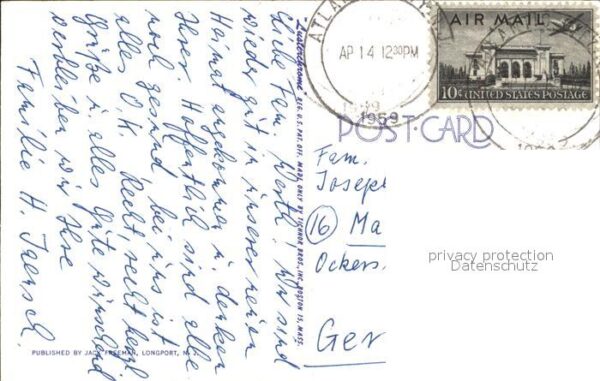 Liebe Fam. Wertl! Wir sind
wieder gut in unserer neuen
Heimat angekommen u. denken
Ihrer. Hoffentlich sind alle
noch gesund bei uns ist
alles O.K. Recht, recht herzl.
Grüße u. alles Gute wünschend
verbleiben wir Ihre
Familie H. Jaensch.
Lusterchrome REG. U.S. PAT. OFF. MADE ONLY BY TICHNOR BROS., INC. BOSTON 15, MASS.
PUBLISHED BY JACK FREEMAN, LONGPORT, N.
ATLAN
AP 14 12 30PM
1959
AIR MAIL
10¢ UNITED STATES POSTAGE
POST CARD
Fam.
Joseph
(16) Ma
Ockers.
Ger
privacy protection
Datenschutz